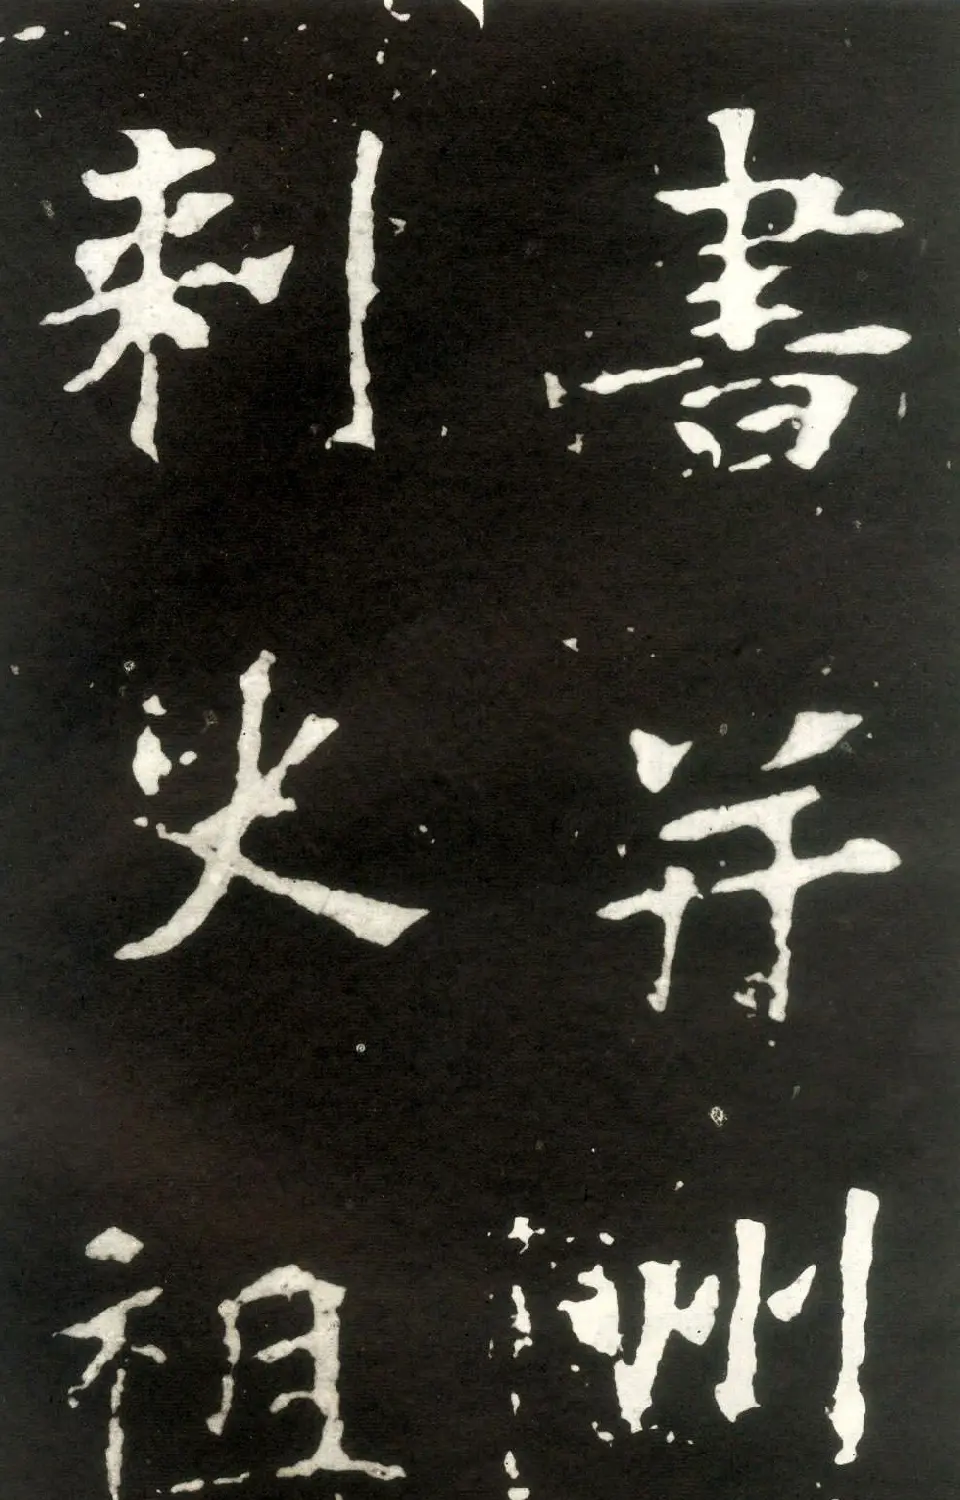 書并州
刺史祖